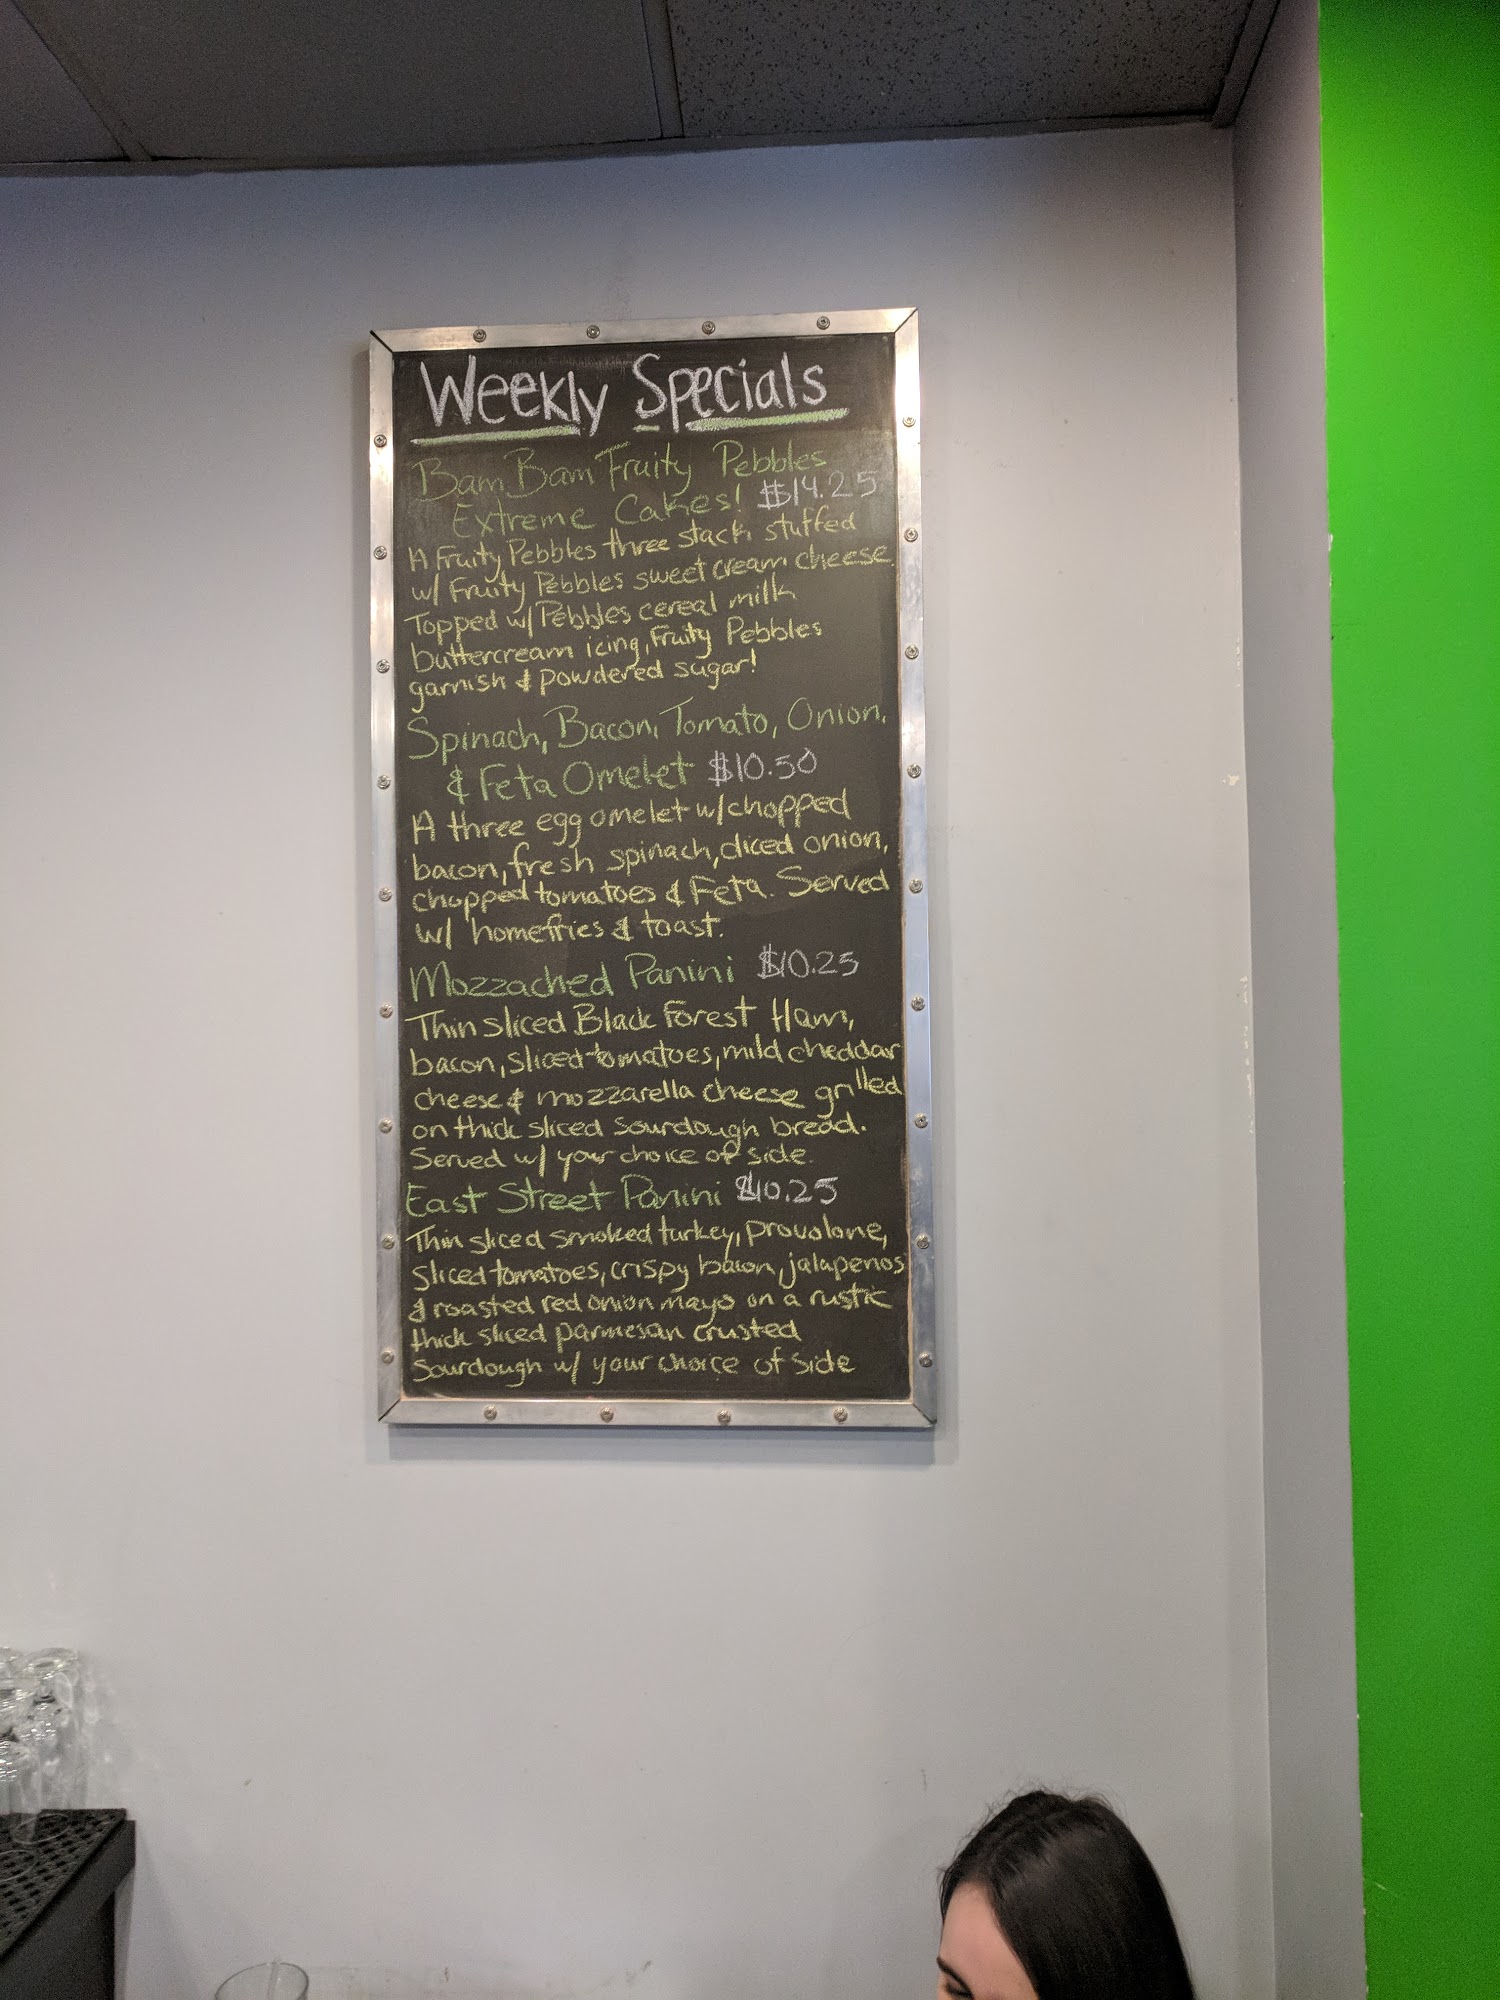 Weekly Specials
Bam Bam Fruity Pebbles
Extreme Cakes! $14.25
A Fruity Pebbles three stack stuffed
w/ Fruity Pebbles sweet cream cheese.
Topped w/ Pebbles cereal milk
buttercream icing, Fruity Pebbles
garnish & powdered sugar!
Spinach, Bacon, Tomato, Onion,
& Feta Omelet $10.50
A three egg omelet w/ chopped
bacon, fresh spinach, diced onion,
chopped tomatoes & Feta. Served
w/ homefries & toast.
Mozzached Panini $10.25
Thin sliced Black Forest Ham,
bacon, sliced tomatoes, mild cheddar
cheese & mozzarella cheese grilled
on thick sliced sourdough bread.
Served w/ your choice of side.
East Street Panini $10.25
Thin sliced smoked turkey, provolone,
sliced tomatoes, crispy bacon, jalapenos
& roasted red onion mayo on a rustic
thick sliced parmesan crusted
sourdough w/ your choice of side